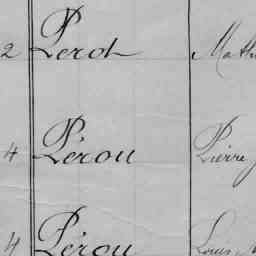 2 Perot Math
4 Pérou Pierre
4 Pérou Louis